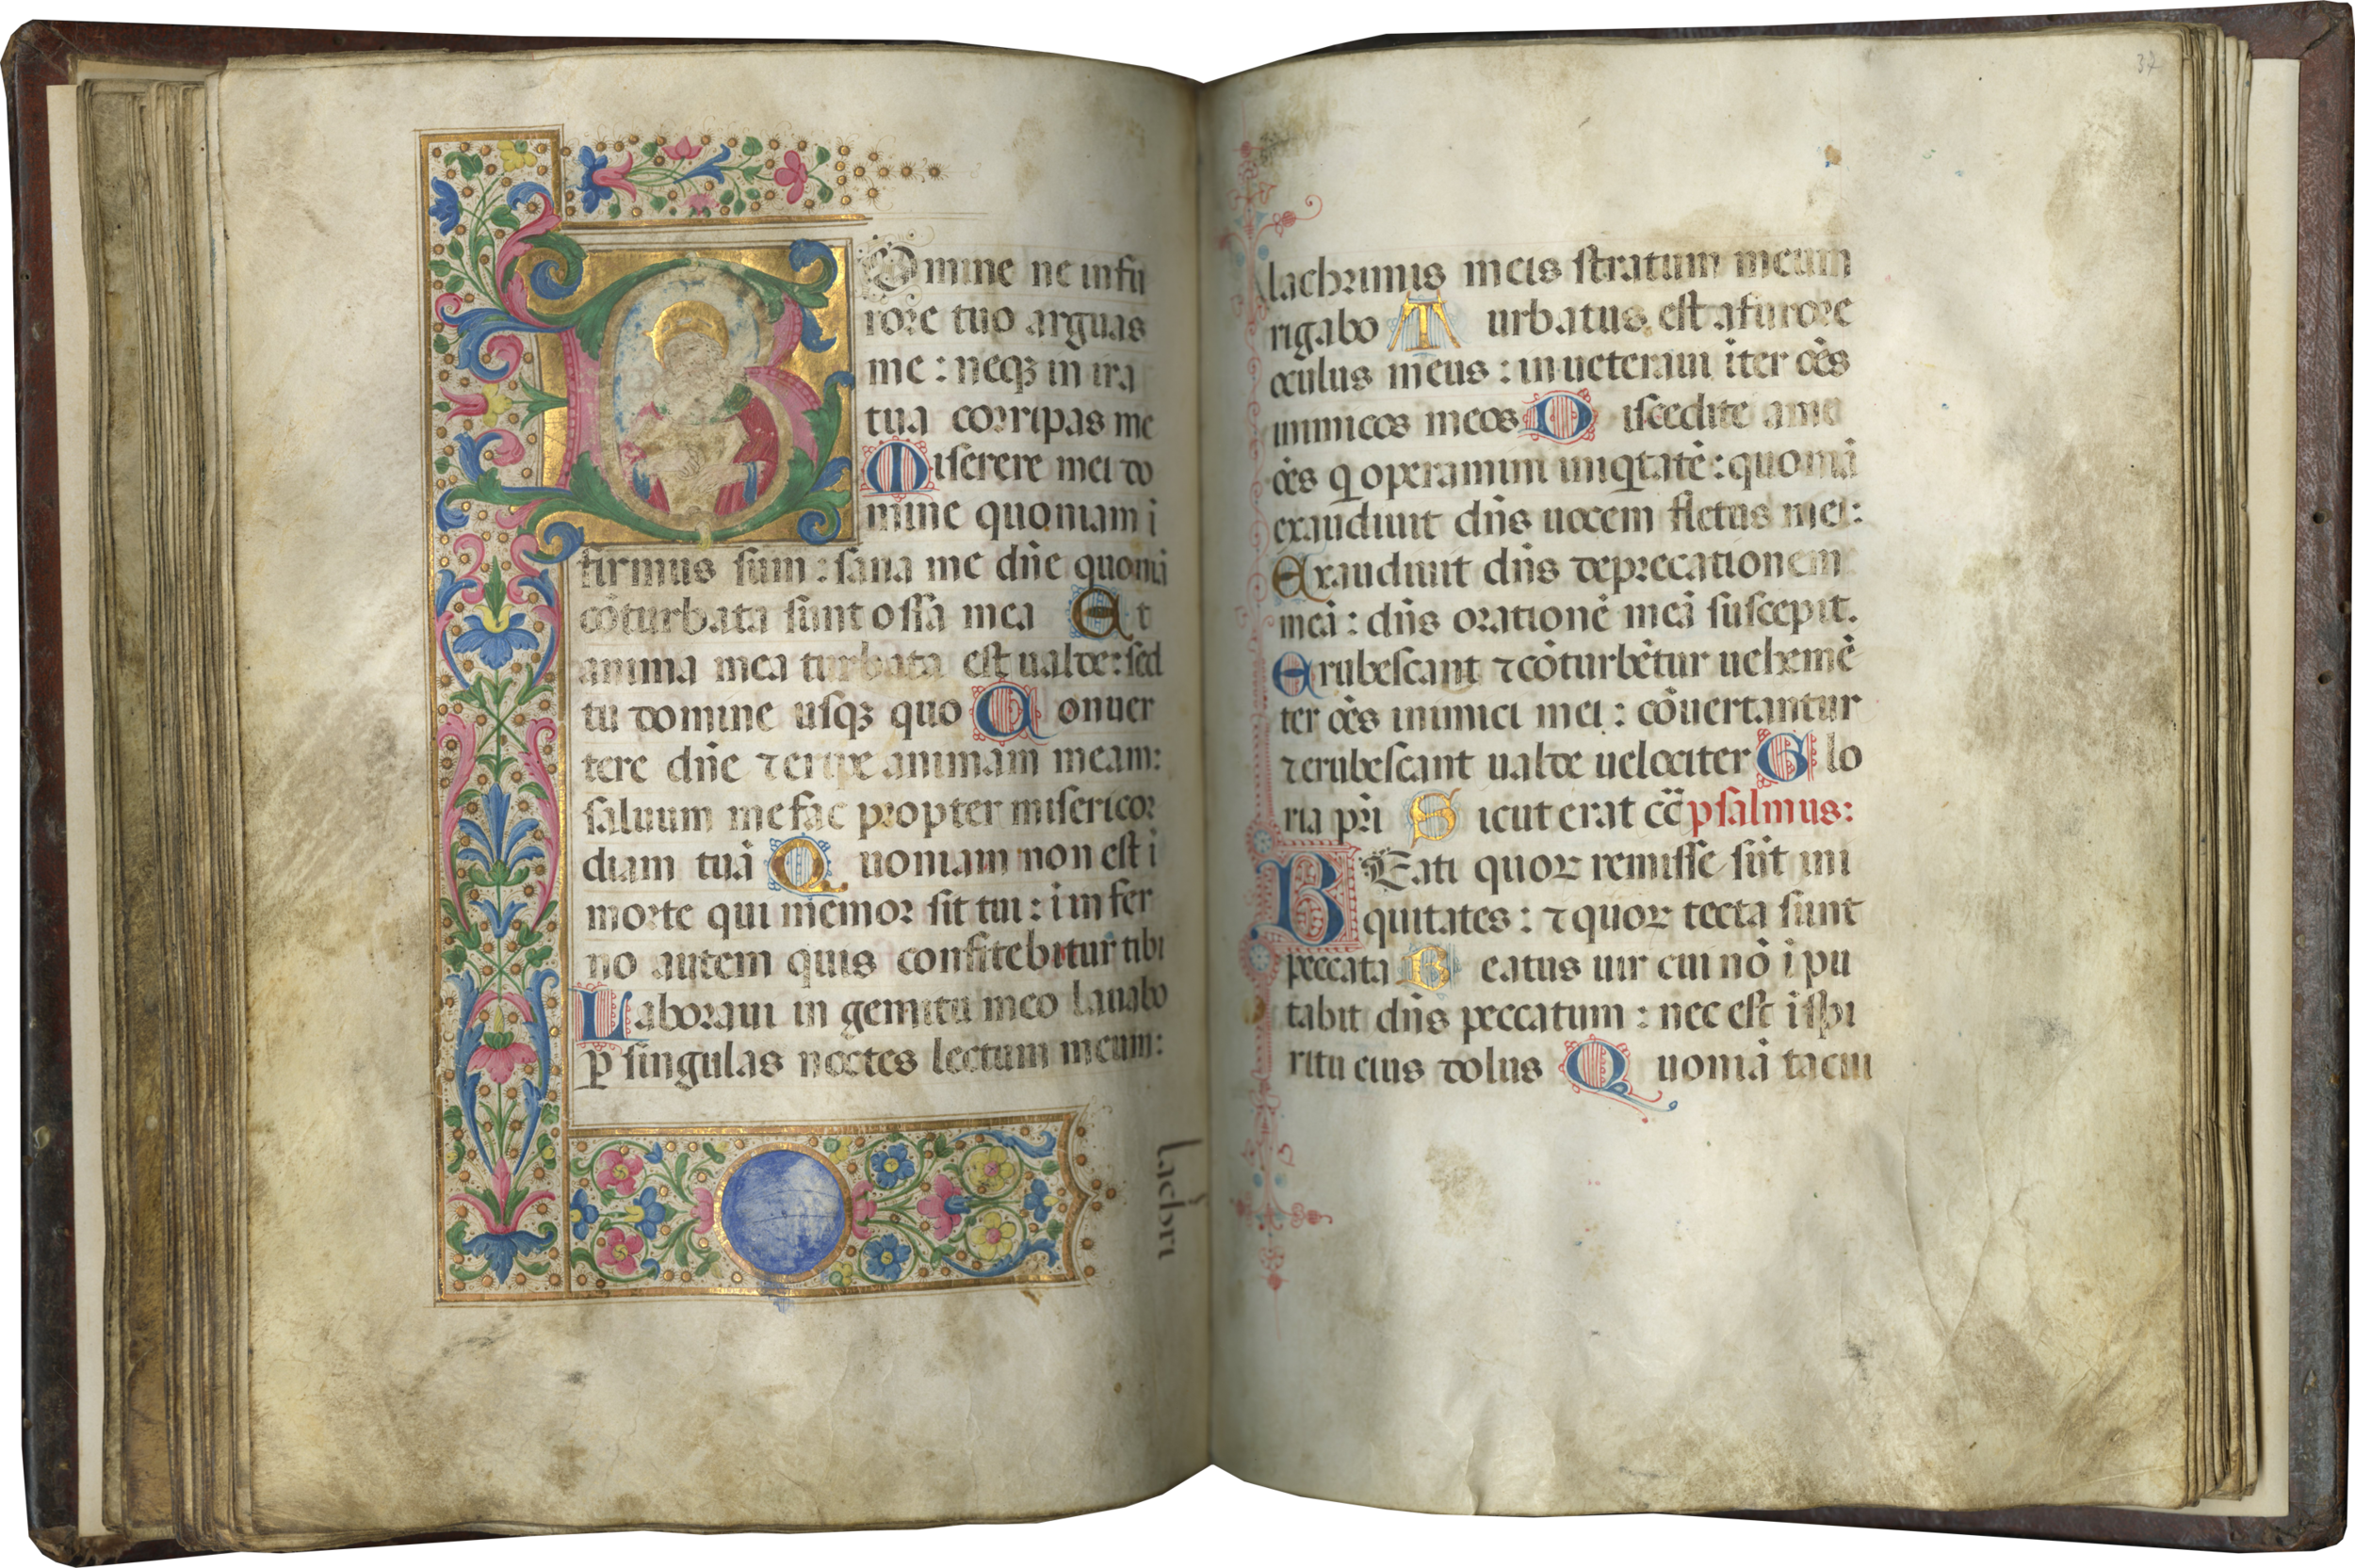 Domine ne in fu
rore tuo arguas
me : neqꝫ in ira
tua corripas me
Miserere mei do
mine quoniam i
firmus sum : sana me dn̄e quoniā
cōturbata sunt ossa mea Et
anima mea turbata est ualde : sed
tu domine usqꝫ quo Conuer
tere dn̄e ⁊ eripe animam meam :
saluum me fac propter misericor
diam tuā Quoniam non est i
morte qui memor sit tui : i infer
no autem quis confitebitur tibi
Laboraui in gemitu meo lauabo
ꝑ singulas noctes lectum meum :
lachri
37
lachrimis meis stratum meum
rigabo Turbatus est a furore
oculus meus : inueteraui īter oēs
inimicos meos Discedite a me
oēs q operamini iniqtatē : quoniā
exaudiuit dn̄s uocem fletus mei :
Exaudiuit dn̄s deprecationem
meā : dn̄s orationē meā suscepit.
Erubescant ⁊ cōturbētur uehemē
ter oēs inimici mei : cōuertantur
⁊ erubescant ualde uelociter Glo
ria pr̄i Sicut erat cc̄ psalmus :
Beati quoꝝ remisse sūt ini
quitates : ⁊ quoꝝ tecta sunt
peccata Beatus uir cui nō ipu
tabit dn̄s peccatum : nec est i spi
ritu eius dolus Quoniā tacui